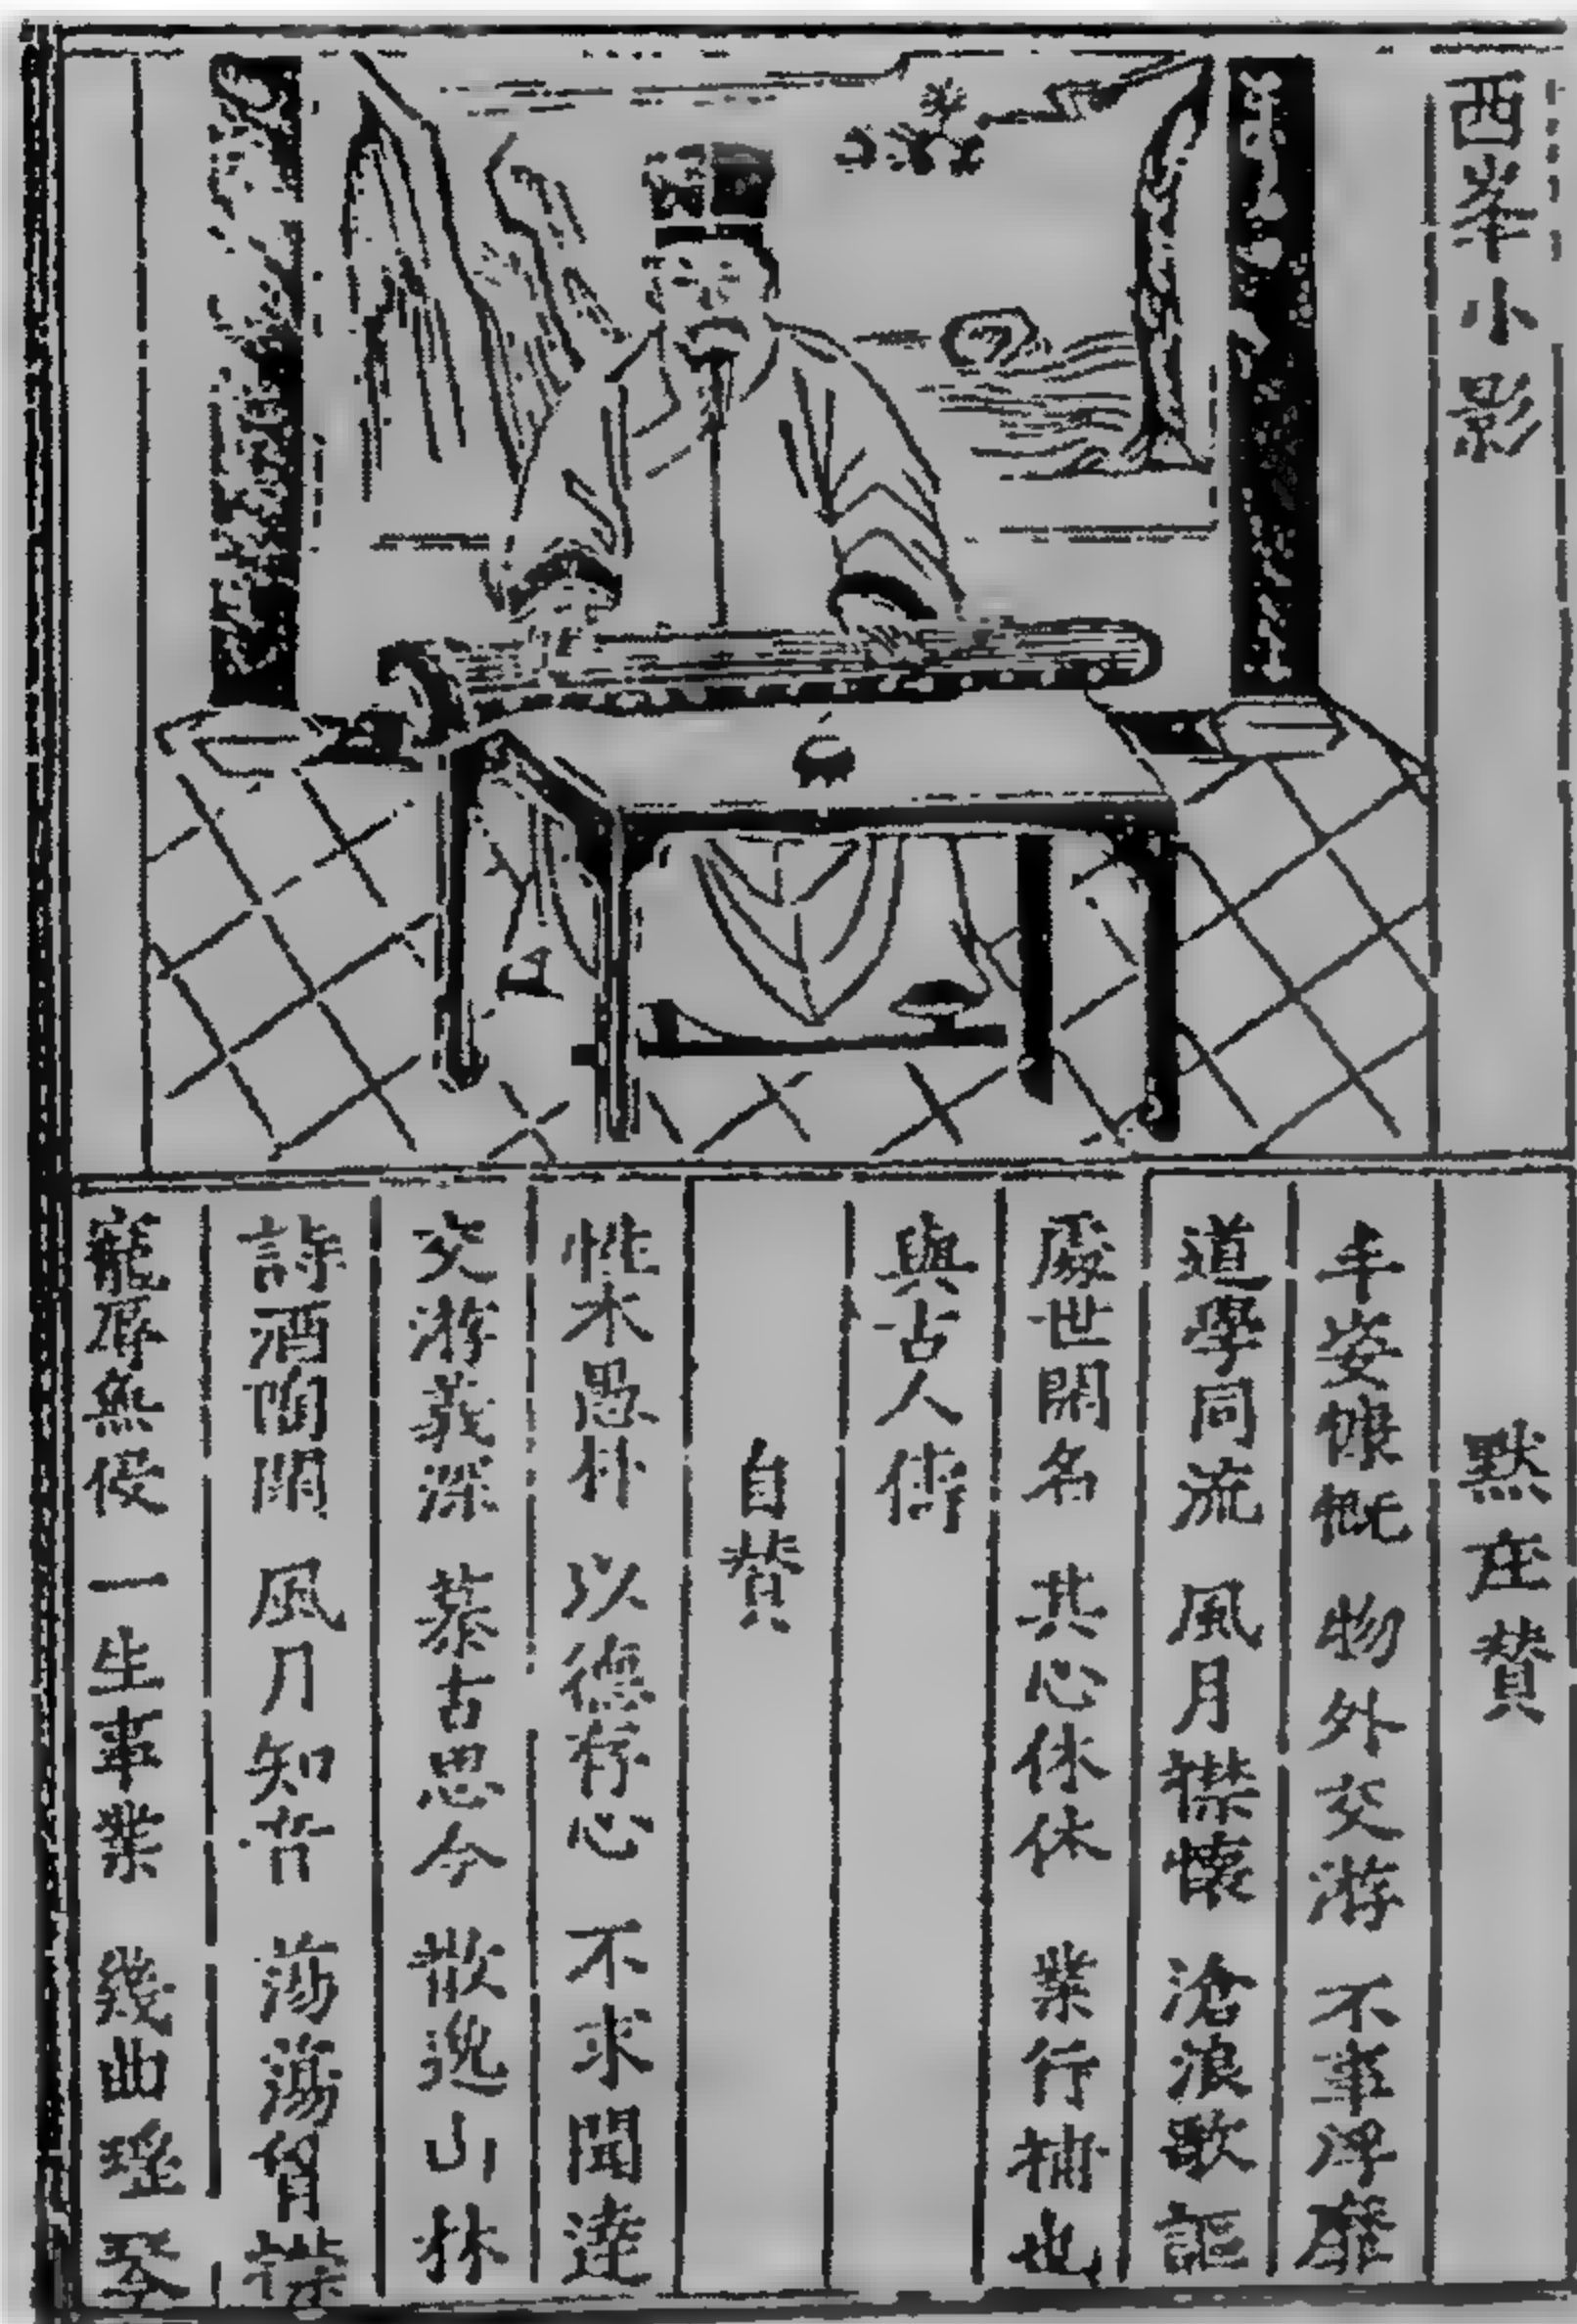 西峯小影
默庄賛
丰姿慷慨 物外交游 不事浮靡
道學同流 風月襟懷 滄浪歌謳
處世閑名 其心休休 業行補也
與古人儔
自賛
性木愚朴 以德存心 不求聞達
交游義深 慕古思今 散逸山林
詩酒陶閑 風月知音 蕩蕩胷襟
寵辱無侵 一生事業 幾曲瑶琴